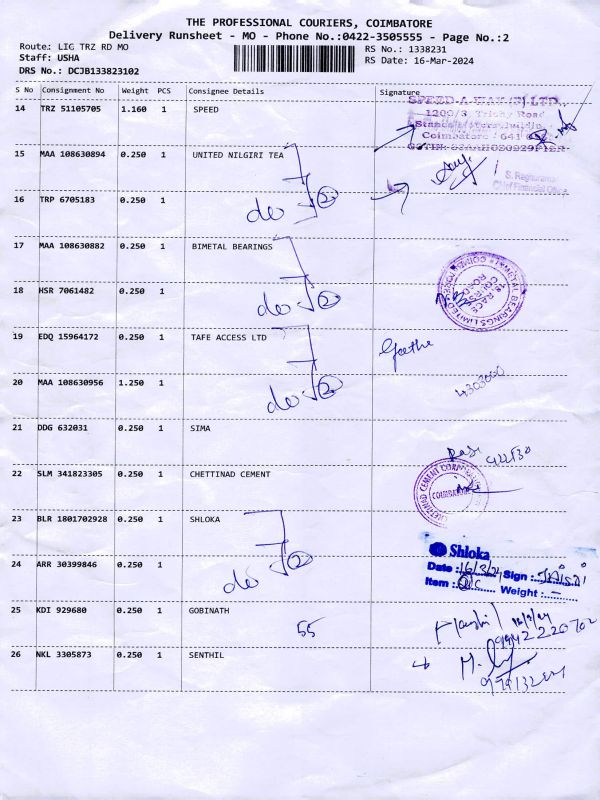 THE PROFESSIONAL COURIERS, COIMBATORE
Delivery Runsheet - MO - Phone No.:0422-3505555 - Page No.:2
Route: LIG TRZ RD MO
Staff: USHA
DRS No.: DCJB133823102
RS No.: 1338231
RS Date: 16-Mar-2024
S No Consignment No Weight PCS Consignee Details Signature
14 TRZ 51105705 1.160 1 SPEED
SPEED-A-WAY (P) LTD.,
1200/3, Trichy Road
Coimbatore - 641
15 MAA 108630894 0.250 1 UNITED NILGIRI TEA
S. Raghuraman
Chief Financial Officer
16 TRP 6705183 0.250 1 do 2
17 MAA 108630882 0.250 1 BIMETAL BEARINGS
BIMETAL BEARINGS LIMITED
18, RACE COURSE ROAD
18 HSR 7061482 0.250 1 do 2
19 EDQ 15964172 0.250 1 TAFE ACCESS LTD Geetha
20 MAA 108630956 1.250 1 do 2 4303000
21 DDG 632031 0.250 1 SIMA
22 SLM 341823305 0.250 1 CHETTINAD CEMENT
CHETTINAD CEMENT CORPORATION
COIMBATORE
23 BLR 1801702928 0.250 1 SHLOKA
Shloka
Date : 16/3/24 Sign :
Item : Weight : -
24 ARR 30399846 0.250 1 do 2
25 KDI 929680 0.250 1 GOBINATH 55
26 NKL 3305873 0.250 1 SENTHIL